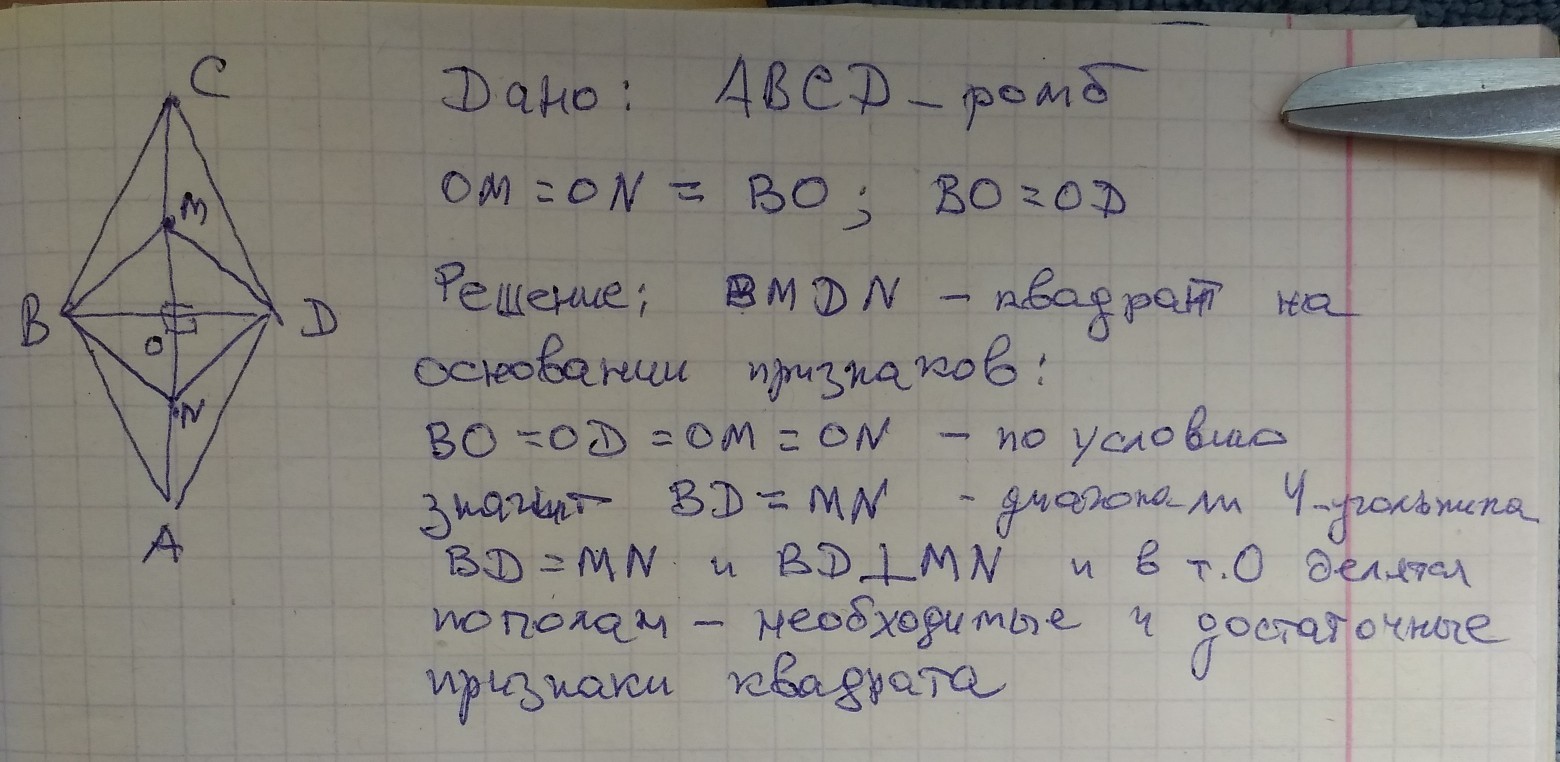 C
Дано: ABCD – ромб
M
OM = ON = BO; BO = OD
Решение; BMDN – квадрат на
B
O
D
основании признаков:
N
BO = OD = OM = ON – по условию
значит BD = MN - диагонали 4-угольника
A
BD = MN и BD ⊥ MN и в т.О делятся
пополам – необходимые и достаточные
признаки квадрата